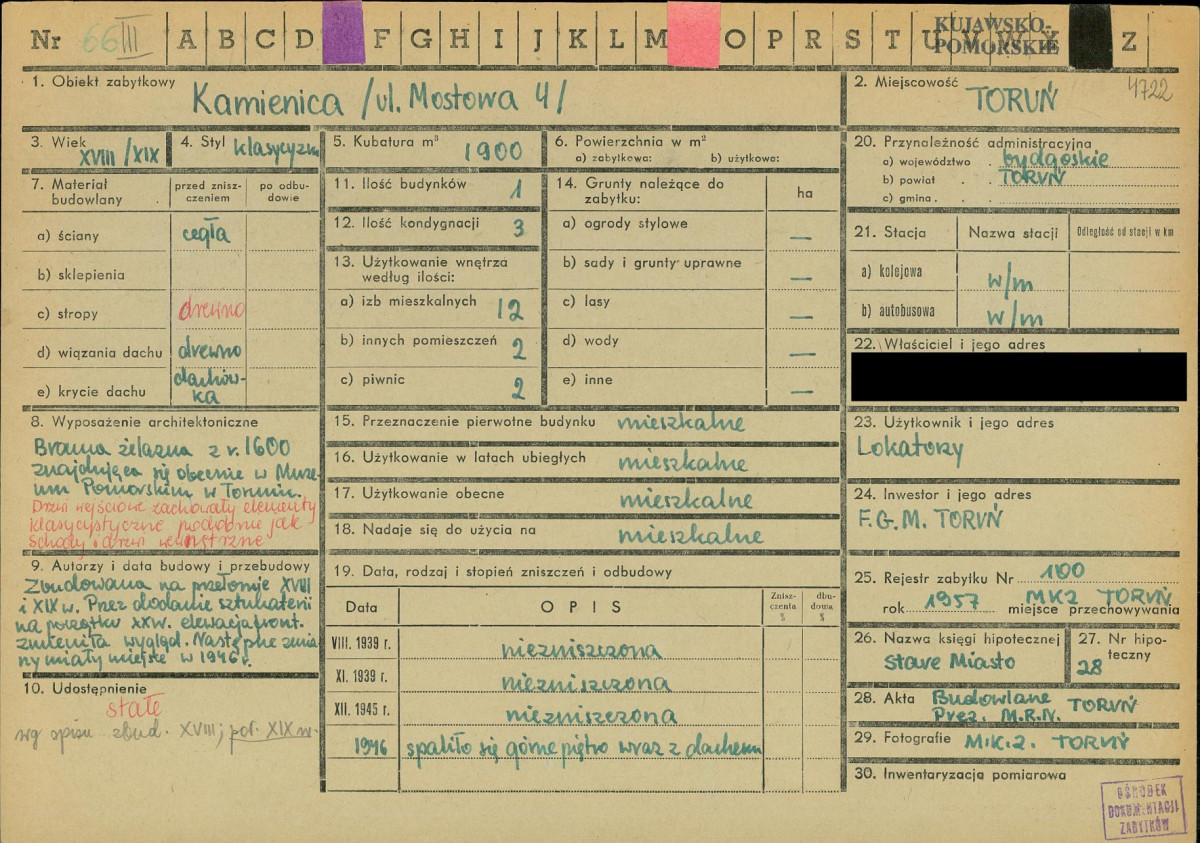 Nr 66 III A B C D F G H I J K L M O P R S T U V W Y Z
KUJAWSKO-
POMORSKIE
1. Obiekt zabytkowy
Kamienica /ul. Mostowa 4/
2. Miejscowość
TORUŃ
4722
3. Wiek
XVIII/XIX
4. Styl klasycyzm
5. Kubatura m³
1900
6. Powierzchnia w m²
a) zabytkowa: b) użytkowa:
7. Materiał
budowlany
przed znisz-
czeniem
po odbu-
dowie
a) ściany cegła
b) sklepienia
c) stropy drewno
d) wiązania dachu drewno
e) krycie dachu dachów-
ka
8. Wyposażenie architektoniczne
Brama żelazna z r. 1600
znajdująca się obecnie w Muze-
um Pomorskim w Toruniu.
Drzwi wejściowe zachowały elementy
klasycystyczne podobnie jak
schody i drzwi wewnętrzne
9. Autorzy i data budowy i przebudowy
Zbudowana na przełomie XVIII
i XIX w. Przez dodanie sztukaterii
na początku XXw. elewacja front.
zmieniła wygląd. Następne zmia-
ny miały miejsce w 1946r.
10. Udostępnienie
stałe
wg opisu zbud. XVIII; poł. XIX w.
11. Ilość budynków 1
12. Ilość kondygnacji 3
13. Użytkowanie wnętrza
według ilości:
a) izb mieszkalnych 12
b) innych pomieszczeń 2
c) piwnic 2
14. Grunty należące do
zabytku:
ha
a) ogrody stylowe —
b) sady i grunty uprawne —
c) lasy —
d) wody —
e) inne —
15. Przeznaczenie pierwotne budynku mieszkalne
16. Użytkowanie w latach ubiegłych mieszkalne
17. Użytkowanie obecne mieszkalne
18. Nadaje się do użycia na mieszkalne
19. Data, rodzaj i stopień zniszczeń i odbudowy
Data OPIS
Znisz-
czenia
%
dbu-
dowia
%
VIII. 1939 r. niezniszczona
XI. 1939 r. niezniszczona
XII. 1945 r. niezniszczona
1946 spaliło się górne piętro wraz z dachem
20. Przynależność administracyjna
a) województwo . bydgoskie
b) powiat . . TORUŃ
c) gmina . . .
21. Stacja Nazwa stacji Odległość od stacji w km
a) kolejowa w/m
b) autobusowa w/m
22. Właściciel i jego adres
23. Użytkownik i jego adres
Lokatorzy
24. Inwestor i jego adres
F.G.M. TORUŃ
25. Rejestr zabytku Nr 100
rok 1957 MKZ TORUŃ
miejsce przechowywania
26. Nazwa księgi hipotecznej
Stare Miasto
27. Nr hipo-
teczny
28
28. Akta Budowlane
Prez. M.R.N. TORUŃ
29. Fotografie M.K.Z. TORUŃ
30. Inwentaryzacja pomiarowa
OŚRODEK
DOKUMENTACJI
ZABYTKÓW